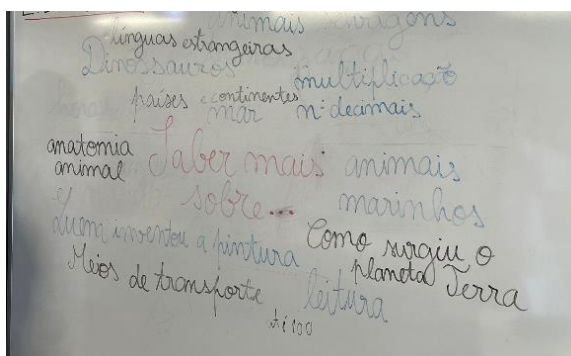 animais selvagens
línguas estrangeiras
Dinossauros
multiplicação
países e continentes
mar
nº decimais
anatomia
animal
Saber mais
sobre...
animais
marinhos
Quem inventou a pintura
Como surgiu o
planeta Terra
Meios de transporte
leitura
até 100